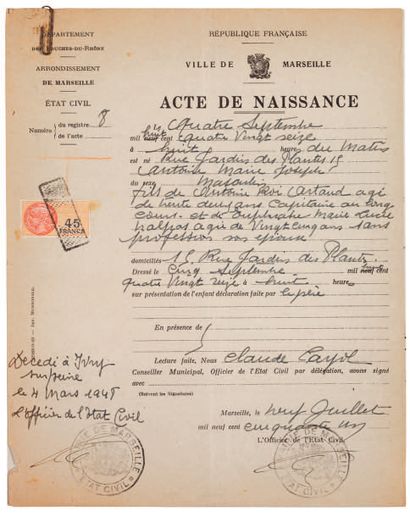 DÉPARTEMENT
DES BOUCHES-DU-RHÔNE
ARRONDISSEMENT
DE MARSEILLE
ÉTAT CIVIL
Numéro du registre 8
de l'acte
45
FRANCS
RÉPUBLIQUE FRANÇAISE
VILLE DE MARSEILLE
ACTE DE NAISSANCE
Le Quatre Septembre
mil huit cent quatre Vingt Seize
à huit heures du Matin
est né Rue Jardin des Plantes 15
Antoine Marie Joseph
du sexe Masculin
fils de Antoine Roi Artaud agé
de trente deux ans Capitaine au long
cours et de Euphrasie Marie Lucie
Nalpas agée de Vingt cinq ans sans
profession son épouse
domiciliés 15 Rue Jardin des Plantes
Dressé le Cinq Septembre mil huit cent
quatre Vingt Seize à huit heures
sur présentation de l'enfant déclaration faite par le père
En présence de
Lecture faite, Nous Claude Cayol
Conseiller Municipal, Officier de l'Etat Civil par délégation, avons signé
avec
(Suivent les Signatures)
Décédé à Ivry
sur Seine
le 4 Mars 1948
L'Officier de l'Etat Civil
Marseille, le neuf Juillet
mil neuf cent cinquante un
L'Officier de l'Etat Civil,
VILLE DE MARSEILLE
ETAT CIVIL
VILLE DE MARSEILLE
ETAT CIVIL